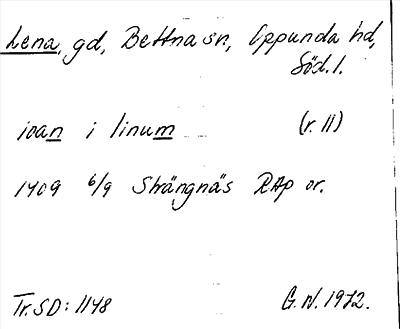 Lena, gd, Bettna sn, Oppunda hd,
Söd. l.
ioan i linum (r. 11)
1409 6/9 Strängnäs RAp or.
Tr. SD: 1148 G. N. 1972.